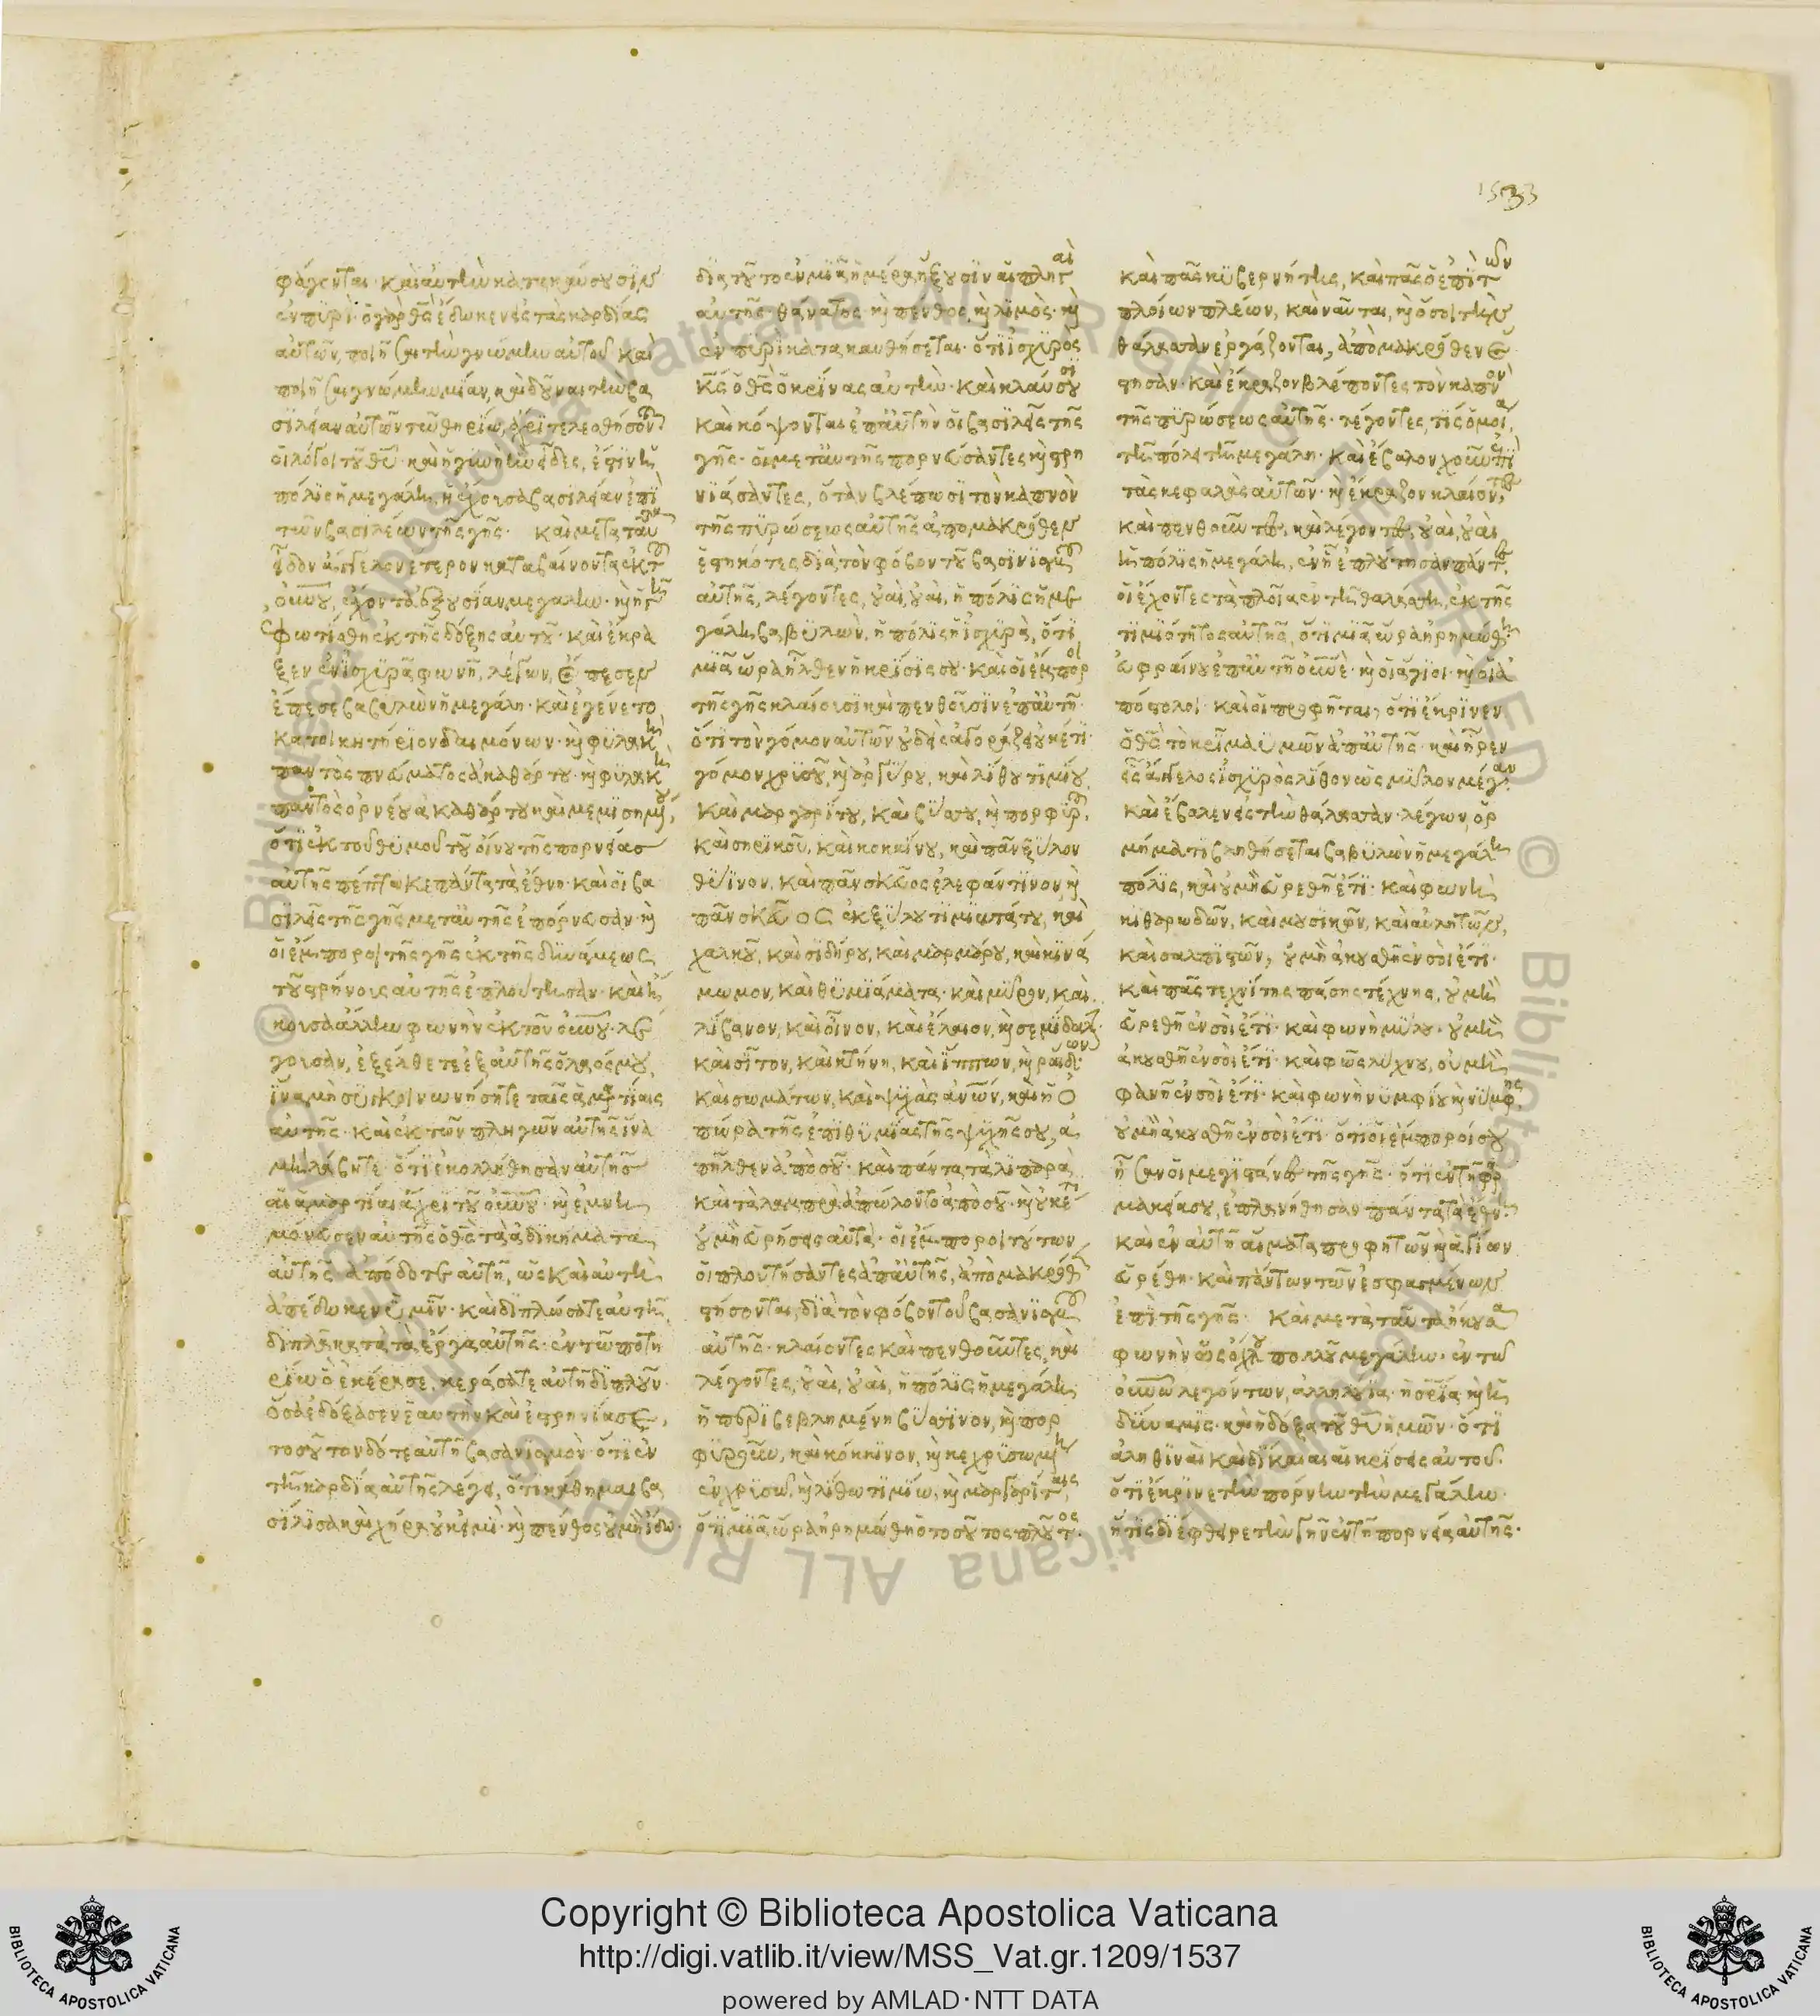 1533
φάγονται· καὶ αὐτὴν κατακαύσουσιν
ἐν πυρί· ὁ γὰρ θς ἔδωκεν εἰς τὰς καρδίας
αὐτῶν, ποιῆσαι τὴν γνώμην αὐτοῦ καὶ
ποιῆσαι γνώμην μίαν, καὶ δοῦναι τὴν βα
σιλείαν αὐτῶν τῶ θηρίω, ἄχρι τελεσθήσονται
οἱ λόγοι τοῦ θυ· καὶ ἡ γυνὴ ἣν εἶδες, ἔστιν ἡ
πόλις ἡ μεγάλη, ἡ ἔχουσα βασιλείαν ἐπὶ
τῶν βασιλέων τῆς γῆς· καὶ μετὰ ταῦτα
ἶδον ἄγγελον ἕτερον καταβαίνοντα ἐκ τοῦ
οὐνου, ἔχοντα ἐξουσίαν μεγάλην· καὶ ἡ γῆ
ἐφωτίσθη ἐκ τῆς δόξης αὐτοῦ· καὶ ἔκρα
ξεν ἐν ἰσχυρᾶ φωνῆ, λέγων, ἔπεσεν
ἔπεσε βαβυλὼν ἡ μεγάλη· καὶ ἐγένετο
κατοικητήριον δαιμόνων· καὶ φυλακὴ
παντὸς πνεύματος ἀκαθάρτου· καὶ φυλακὴ
παντὸς ὀρνέου ἀκαθάρτου καὶ μεμισημένου,
ὅτι ἐκ τοῦ θυμοῦ τοῦ οἴνου τῆς πορνείας
αὐτῆς πέπτωκε πάντα τὰ ἔθνη· καὶ οἱ βα
σιλεῖς τῆς γῆς μετ' αὐτῆς ἐπόρνευσαν· καὶ
οἱ ἔμποροι τῆς γῆς ἐκ τῆς δυνάμεως
τοῦ στρήνους αὐτῆς ἐπλούτησαν· καὶ ἤ
κουσα ἄλλην φωνὴν ἐκ τοῦ οὐνου· λέ
γουσαν, ἐξέλθετε ἐξ αὐτῆς ὁ λαός μου,
ἵνα μὴ συγκοινωνήσητε ταῖς ἁμαρτίαις
αὐτῆς· καὶ ἐκ τῶν πληγῶν αὐτῆς ἵνα
μὴ λάβητε· ὅτι ἐκολλήθησαν αὐτῆς
αἱ ἁμαρτίαι ἄχρι τοῦ οὐνου· καὶ ἐμνη
μόνευσεν αὐτῆς ὁ θς τὰ ἀδικήματα
αὐτῆς ἀπόδοτε αὐτῆ, ὡς καὶ αὐτὴ
ἀπέδωκεν ὑμῖν· καὶ διπλώσατε αὐτῆ
διπλᾶ κατὰ τὰ ἔργα αὐτῆς· ἐν τῶ ποτη
ρίω ὧ ἐκέρασε, κεράσατε αὐτῆ διπλοῦν
ὅσα ἐδόξασεν ἑαυτὴν καὶ ἐστρηνίασε,
τοσοῦτον δότε αὐτῆ βασανισμὸν· ὅτι ἐν
τῆ καρδία αὐτῆς λέγει, ὅτι κάθημαι βα
σίλισα καὶ χήρα οὐκ εἰμὶ· καὶ πένθος οὐ μὴ ἴδω·
διὰ τοῦτο ἐν μιᾶ ἡμέρα ἥξουσιν αἱ πληγαὶ
αὐτῆς· θάνατος καὶ πένθος, καὶ λιμὸς· καὶ
ἐν πυρὶ κατακαυθήσεται· ὅτι ἰσχυρὸς
κς ὁ θς ὁ κρίνας αὐτὴν· καὶ κλαύσουσι
καὶ κόψονται ἐπ' αὐτὴν οἱ βασιλεῖς τῆς
γῆς· οἱ μετ' αὐτῆς πορνεύσαντες καὶ στρη
νιάσαντες, ὅταν βλέπωσι τὸν καπνὸν
τῆς πυρώσεως αὐτῆς ἀπο μακρόθεν
ἑστηκότες διὰ τὸν φόβον τοῦ βασανισμοῦ
αὐτῆς, λέγοντες, οὐαὶ, οὐαὶ, ἡ πόλις ἡ με
γάλη βαβυλὼν, ἡ πόλις ἡ ἰσχυρὰ, ὅτι
μιᾶ ὥρα ἦλθεν ἡ κρίσις σου· καὶ οἱ ἔμποροι
τῆς γῆς κλαίουσι καὶ πενθοῦσιν ἐπ' αὐτῆ·
ὅτι τὸν γόμον αὐτῶν οὐδεὶς ἀγοράζει οὐκέτι·
γόμον χρυσοῦ, καὶ ἀργύρου, καὶ λίθου τιμίου,
καὶ μαργαρίτου, καὶ βύσσου, καὶ πορφύρου,
καὶ σηρικοῦ, καὶ κοκκίνου, καὶ πᾶν ξύλον
θύϊνον, καὶ πᾶν σκεῦος ἐλεφάντινον καὶ
πᾶν σκεῦος ἐκ ξύλου τιμιωτάτου, καὶ
χαλκοῦ, καὶ σιδήρου, καὶ μαρμάρου, καὶ κινά
μωμον, καὶ θυμιάματα· καὶ μύρον, καὶ
λίβανον, καὶ οἶνον, καὶ ἔλαιον, καὶ σεμίδαλιν
καὶ σῖτον, καὶ κτήνη, καὶ ἵππων, καὶ ῥαιδῶν·
καὶ σωμάτων, καὶ ψυχὰς ἀνων, καὶ ἡ ὀ
πώρα τῆς ἐπιθυμίας τῆς ψυχῆς σου, ἀ
πῆλθεν ἀπὸ σοῦ· καὶ πάντα τὰ λιπαρὰ
καὶ τὰ λαμπρὰ ἀπώλοντο ἀπὸ σοῦ· καὶ οὐκέτι
οὐ μὴ εὑρήσεις αὐτὰ· οἱ ἔμποροι τούτων
οἱ πλουτήσαντες ἀπ' αὐτῆς, ἀπὸ μακρόθεν
στήσονται, διὰ τὸν φόβον τοῦ βασανισμοῦ
αὐτῆς· κλαίοντες καὶ πενθοῦντες, καὶ
λέγοντες, οὐαὶ, οὐαὶ, ἡ πόλις ἡ μεγάλη
ἡ περιβεβλημένη βύσσινον, καὶ πορ
φυροῦν, καὶ κόκκινον, καὶ κεχρυσωμένη
ἐν χρυσῶ καὶ λίθω τιμίω, καὶ μαργαρίταις,
ὅτι μιᾶ ὥρα ἠρημώθη ὁ τοσοῦτος πλοῦτος.
καὶ πᾶς κυβερνήτης, καὶ πᾶς ὁ ἐπὶ τῶν
πλοίων πλέων, καὶ ναῦται, καὶ ὅσοι τὴν
θάλασσαν ἐργάζονται, ἀπὸ μακρόθεν ἔ
στησαν· καὶ ἔκραζον βλέποντες τὸν καπνὸν
τῆς πυρώσεως αὐτῆς· λέγοντες, τίς ὁμοία,
τῆ πόλει τῆ μεγάλη· καὶ ἔβαλον χοῦν ἐπὶ
τὰς κεφαλὰς αὐτῶν· καὶ ἔκραζον κλαίοντες,
καὶ πενθοῦντες, καὶ λέγοντες, οὐαὶ, οὐαὶ
ἡ πόλις ἡ μεγάλη, ἐν ἧ ἐπλούτησαν πάντες
οἱ ἔχοντες τὰ πλοῖα ἐν τῆ θαλάσση, ἐκ τῆς
τιμιότητος αὐτῆς, ὅτι μιᾶ ὥρα ἠρημώθη·
εὐφραίνου ἐπ' αὐτῆ οὐνὲ· καὶ οἱ ἅγιοι· καὶ οἱ ἀ
πόστολοι· καὶ οἱ προφῆται, ὅτι ἔκρινεν
ὁ θς τὸ κρῖμα ὑμῶν ἀπ' αὐτῆς· καὶ ἦρεν
εἷς ἄγγελος ἰσχυρὸς λίθον ὡς μύλον μέγαν
καὶ ἔβαλεν εἰς τὴν θάλασσαν· λέγων, ὁρ
μήματι βληθήσεται βαβυλὼν ἡ μεγάλη
πόλις, καὶ οὐ μὴ εὑρεθῆ ἔτι· καὶ φωνὴ
κιθαρωδῶν, καὶ μουσικῶν, καὶ αὐλητῶν,
καὶ σαλπιστῶν, οὐ μὴ ἀκουσθῆ ἐν σοὶ ἔτι·
καὶ πᾶς τεχνίτης πάσης τέχνης, οὐ μὴ
εὑρεθῆ ἐν σοὶ ἔτι· καὶ φωνὴ μύλου· οὐ μὴ
ἀκουσθῆ ἐν σοὶ ἔτι· καὶ φῶς λύχνου, οὐ μὴ
φανῆ ἐν σοὶ ἔτι· καὶ φωνὴ νυμφίου καὶ νύμφης,
οὐ μὴ ἀκουσθῆ ἐν σοὶ ἔτι· ὅτι οἱ ἔμποροί σου
ἦσαν οἱ μεγιστάνες τῆς γῆς· ὅτι ἐν τῆ φαρ
μακεία σου, ἐπλανήθησαν πάντα τὰ ἔθνη·
καὶ ἐν αὐτῆ αἵματα προφητῶν καὶ ἁγίων
εὑρέθη· καὶ πάντων τῶν ἐσφαγμένων
ἐπὶ τῆς γῆς· καὶ μετὰ ταῦτα ἤκουσα
φωνὴν ὡς ὄχλου πολλοῦ μεγάλην· ἐν τῶ
οὐνω λεγόντων, ἀλληλούϊα· ἡ σρία, καὶ ἡ
δύναμις· καὶ ἡ δόξα τοῦ θυ ἡμῶν· ὅτι
ἀληθιναὶ καὶ δίκαιαι αἱ κρίσεις αὐτοῦ·
ὅτι ἔκρινε τὴν πόρνην τὴν μεγάλην·
ἥτις διέφθειρε τὴν γῆν ἐν τῆ πορνεία αὐτῆς·
Copyright © Biblioteca Apostolica Vaticana
http://digi.vatlib.it/view/MSS_Vat.gr.1209/1537
powered by AMLAD·NTT DATA
BIBLIOTECA APOSTOLICA VATICANA
BIBLIOTECA APOSTOLICA VATICANA